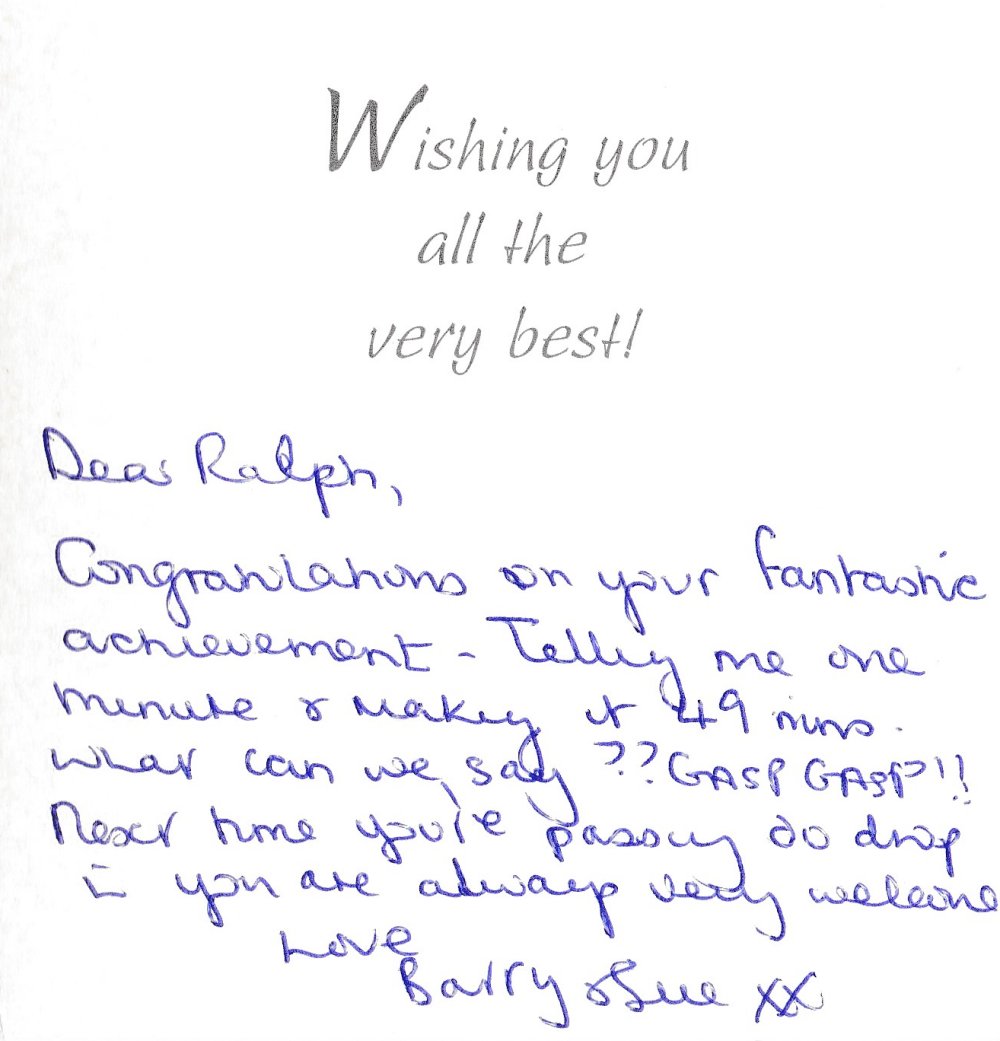 Wishing you
all the
very best!
Dear Ralph,
Congratulations on your fantastic
achievement - Telling me one
minute & making it 49 mins.
What can we say ??GASP GASP!!
Next time you're passing do drop
in you are always very welcome
Love
Barry & Sue xx